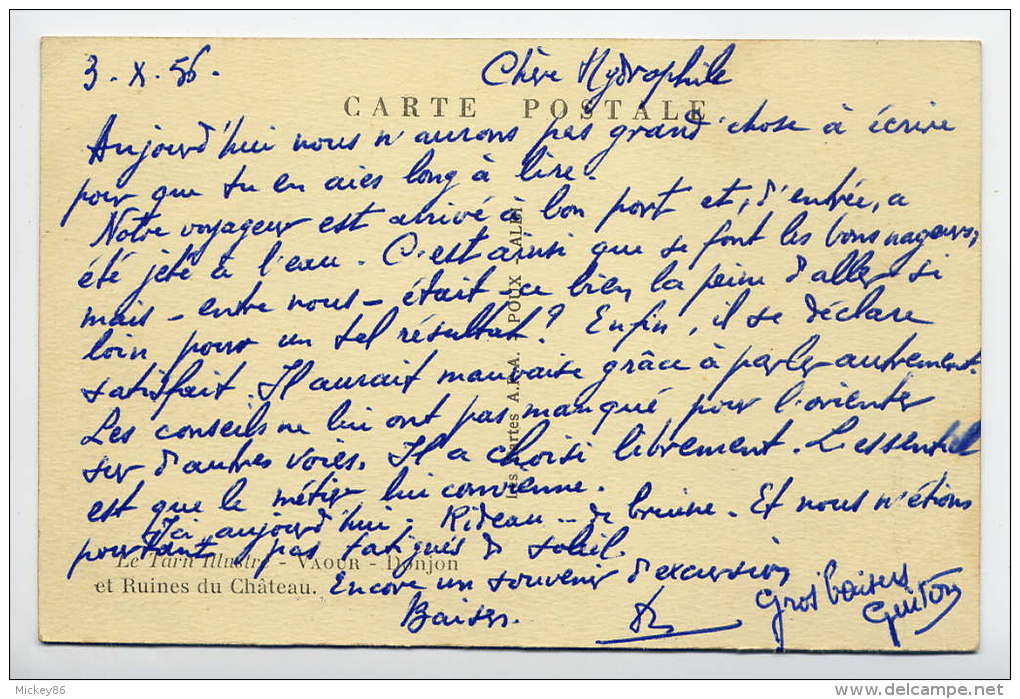 3. X. 56.
Chère Hydrophile
CARTE POSTALE
Aujourd'hui nous n'aurons pas grand'chose à écrire
pour que tu en aies long à lire.
Notre voyageur est arrivé à bon port et, d'entrée, a
été jeté à l'eau. C'est ainsi que se font les bons nageurs,
mais - entre nous - était-ce bien la peine d'aller si
loin pour un tel résultat? Enfin, il se déclare
satisfait. Il aurait mauvaise grâce à parler autrement.
Les conseils ne lui ont pas manqué pour l'orienter
sur d'autres voies. Il a choisi librement. L'essentiel
est que le métier lui convienne.
Ici, aujourd'hui: Rideau... de bruine. Et nous n'étions
pourtant pas fatigués de soleil.
Encore un souvenir d'excursion
Baisers.
Gros baisers
Guiton
Le Tarn Illustré - VAOUR - Donjon
et Ruines du Château.
Les Cartes A.P.A. POUX ALBI
Mickey86
www.delcampe.net